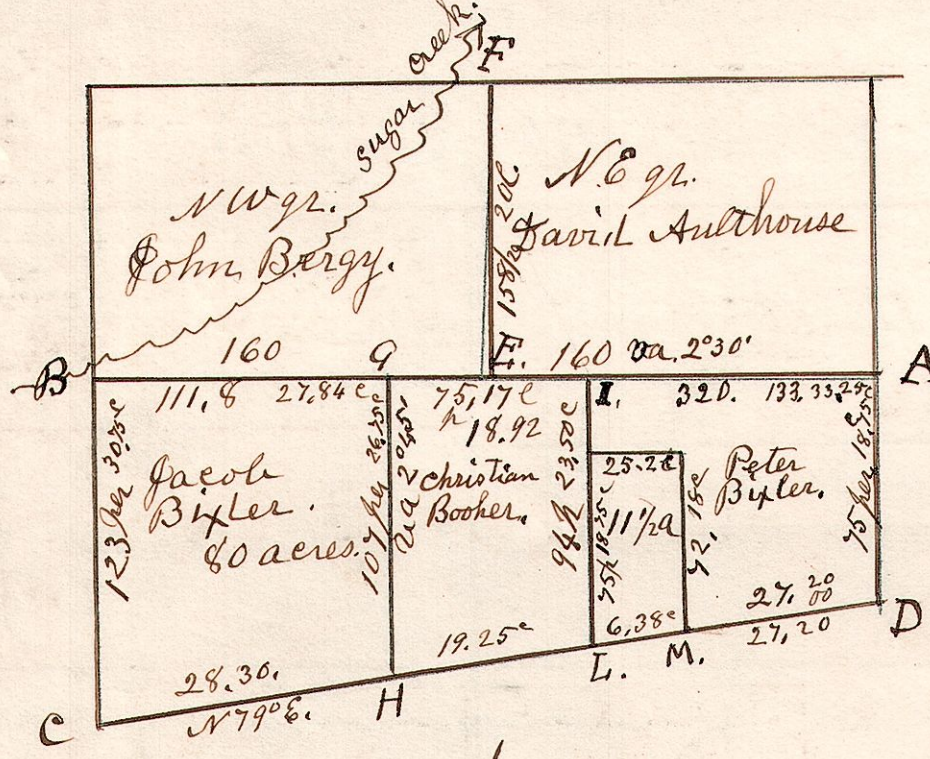 Sugar Creek.
F
N W qr.
John Bergy.
N. E qr.
David Aulthouse
158 20l.
B
160
G
E. 160 va. 2°30'
A
111,8 27,84 c
75,17 l
18.92
I. 320. 133, 33,25c
123 per 30.75c
Jacob
Bixler.
80 acres.
107 per 26.75c
Christian
Booher.
94 p 23,50c
25.2c
11 1/2 a
75p 18.75c
72, 18c
Peter
Bixler.
75 per 18,75c
6,38c
27, 20
00
27,20
D
19.25c
L. M.
28.30.
N 79° E.
H
C